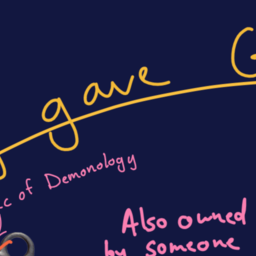 gave
of Demonology
Also owned
by someone